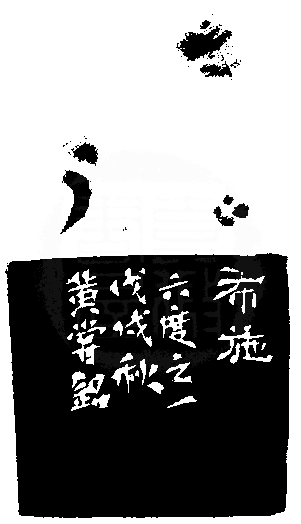 布施
六度之一
戊戌秋
黃嘗銘